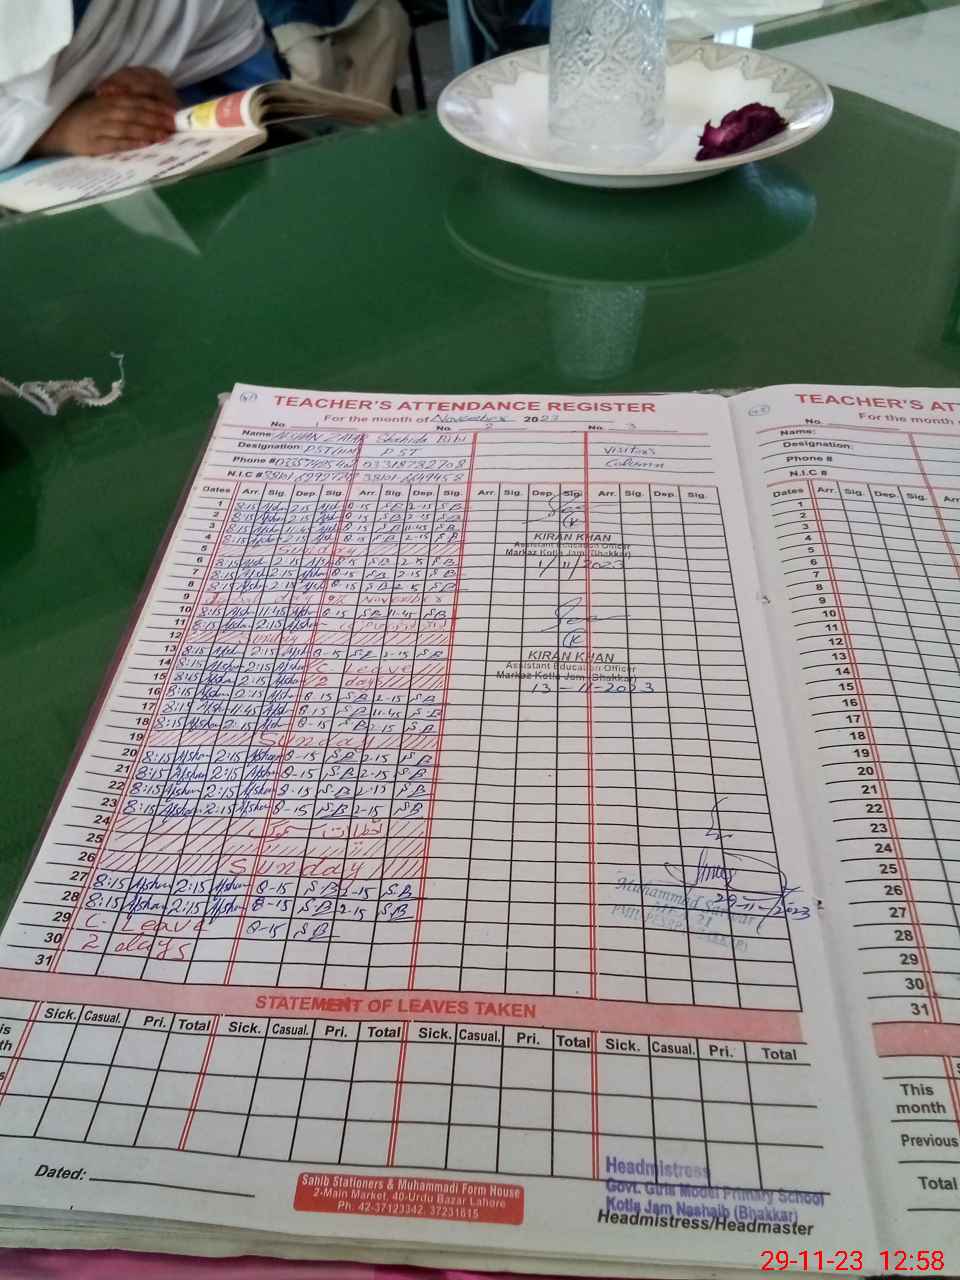 TEACHER'S ATTENDANCE REGISTER
For the month of November 2023
No. 1 No. 2 No. 3
Name: AFSHAN ZAHRA Shahida Bibi
Designation: PST/HM PST Visitors
Phone # 03318732708 Column
N.I.C #
Dates Arr. Sig. Dep. Sig. Arr. Sig. Dep. Sig. Arr. Sig. Dep. Sig. Arr. Sig. Dep. Sig.
1 8:15 Afshan 2:15 Afshan 8-15 SB 2-15 SB
2 8:15 Afshan 2:15 Afshan 8-15 SB 2-15 SB
3 8:15 Afshan 11:45 Afshan 8-15 SB 11-45 SB
4 8:15 Afshan 2:15 Afshan 8-15 SB 2-15 SB
KIRAN KHAN
Assistant Education Officer
Markaz Kotla Jam (Bhakkar)
1/11/2023
5 Sunday
6 8:15 Afshan 2:15 Afshan 8-15 SB 2-15 SB
7 8:15 Afshan 2:15 Afshan 8-15 SB 2-15 SB
8 8:15 Afshan 2:15 Afshan 8-15 SB 2-15 SB
9 Iqbal day 9th November
10 8:15 Afshan 11:45 Afshan 8-15 SB 11-45 SB
11 8:15 Afshan
12 Sunday
13 8:15 Afshan 2:15 Afshan 8-15 SB 2-15 SB
KIRAN KHAN
Assistant Education Officer
Markaz Kotla Jam (Bhakkar)
13-11-2023
14 8:15 Afshan 2:15 Afshan C. Leave
15 8:45 Afshan 2:15 Afshan 2 days
16 8:15 Afshan 2:15 Afshan 8-15 SB 2-15 SB
17 8:15 Afshan 11:45 Afshan 8-15 SB 11-45 SB
18 8:15 Afshan 2:15 Afshan 8-15 SB 2-15 SB
19 Sunday
20 8:15 Afshan 2:15 Afshan 8-15 SB 2-15 SB
21 8:15 Afshan 2:15 Afshan 8-15 SB 2-15 SB
22 8:15 Afshan 2:15 Afshan 8-15 SB 2-15 SB
23 8:15 Afshan 2:15 Afshan 8-15 SB 2-15 SB
24
25
26 Sunday
27 8:15 Afshan 2:15 Afshan 8-15 SB 2-15 SB
28 8:15 Afshan 2:15 Afshan 8-15 SB 2-15 SB
29 C. Leave 8-15 SB
30 2 days
31
29-11-2023
Muhammad Sarwar
STATEMENT OF LEAVES TAKEN
Sick. Casual. Pri. Total Sick. Casual. Pri. Total Sick. Casual. Pri. Total Sick. Casual. Pri. Total
Dated:
Sahib Stationers & Muhammadi Form House
2-Main Market, 40-Urdu Bazar Lahore
Ph: 42-37123342, 37231615
Headmistress
Govt. Girls Model Primary School
Kotla Jam Nashaib (Bhakkar)
Headmistress/Headmaster
TEACHER'S AT
For the month
No.
Name:
Designation:
Phone #
N.I.C #
Dates Arr. Sig. Dep. Sig. Arr
1
2
3
4
5
6
7
8
9
10
11
12
13
14
15
16
17
18
19
20
21
22
23
24
25
26
27
28
29
30
31
This
month
Previous
Total
29-11-23 12:58